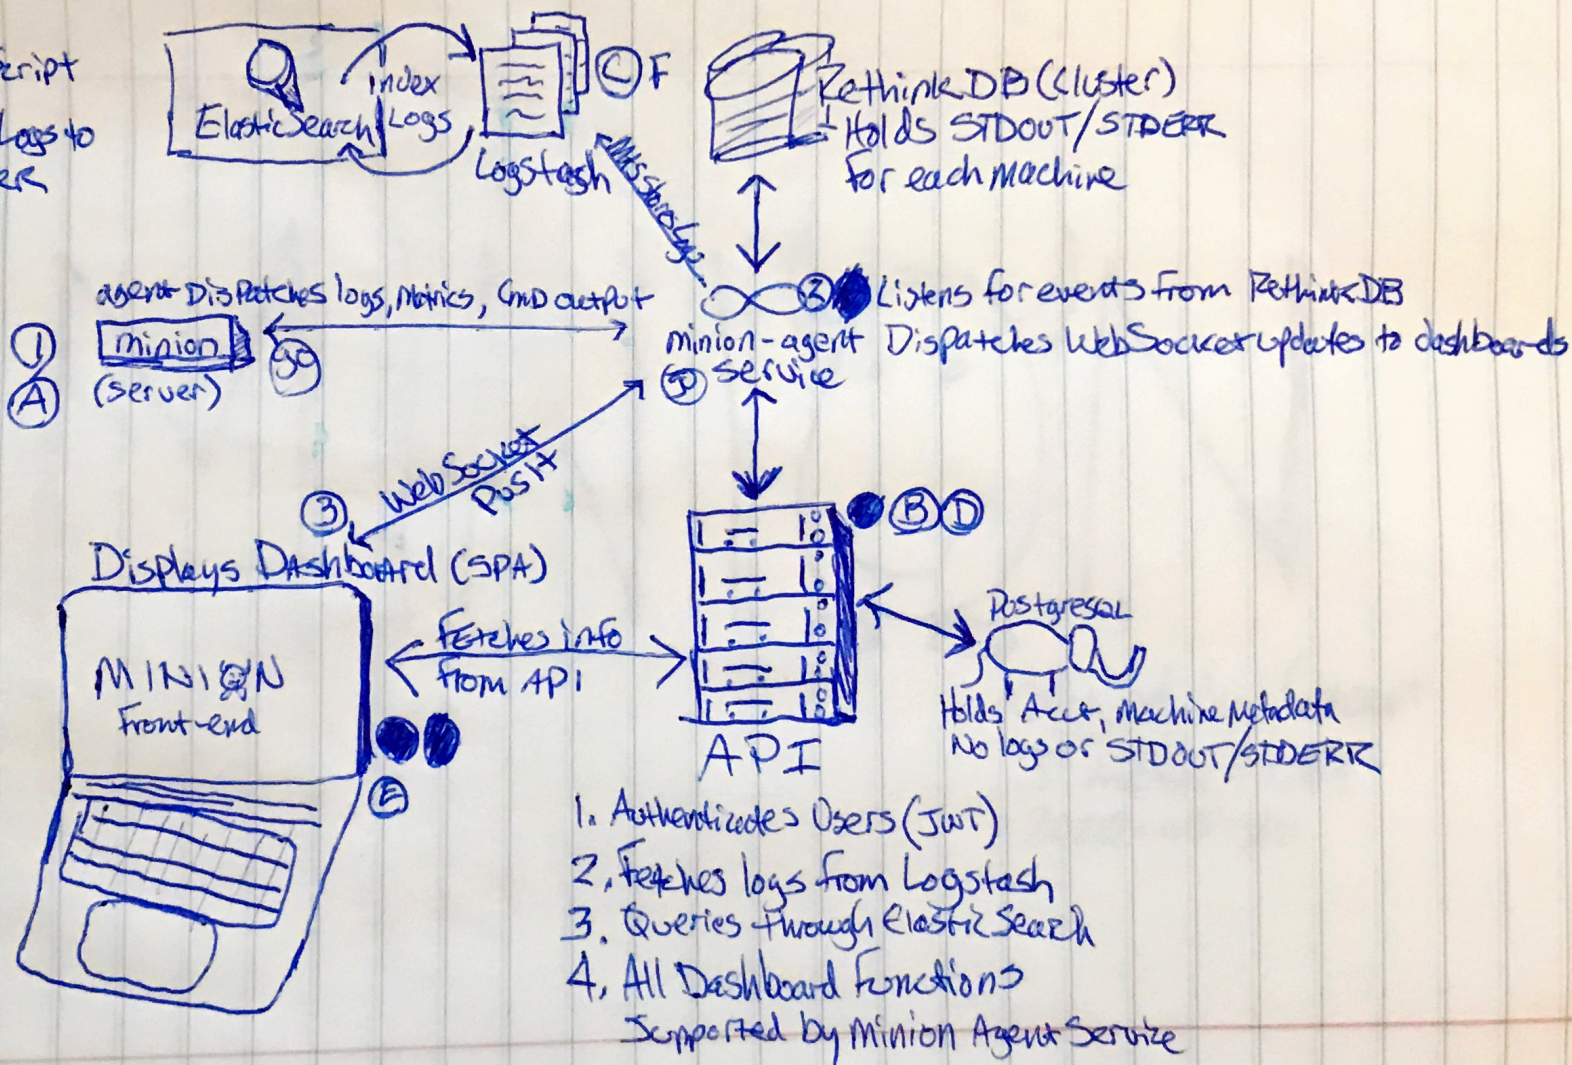 cript
Logs to
ER
ElasticSearch
index
Logs
Logstash
C F
RethinkDB (Cluster)
Holds STDOUT/STDERR
For each machine
agent Dispatches logs, Metrics, CMD output
1
A
minion
(server)
go
2
Listens for events from RethinkDB
Dispatches WebSocket updates to dashboards
minion-agent
service
WebSocket
Push
3
Displays Dashboard (SPA)
MINION
Front-end
E
Fetches info
from API
B D
API
PostgreSQL
Holds Acct, Machine Metadata
No logs or STDOUT/STDERR
1. Authenticates Users (JWT)
2. Fetches logs from Logstash
3. Queries through ElasticSearch
4. All Dashboard Functions
Supported by Minion Agent Service